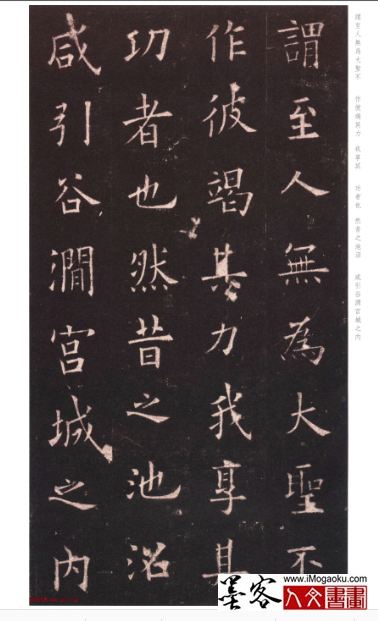 謂至人無為大聖不 作彼竭其力 我享其 功者也 然昔之池沼 咸引谷澗宮城之內
謂至人無為大聖不
作彼竭其力我享其
功者也然昔之池沼
咸引谷澗宮城之內
墨客
www.iMogaoku.com
人文書畫